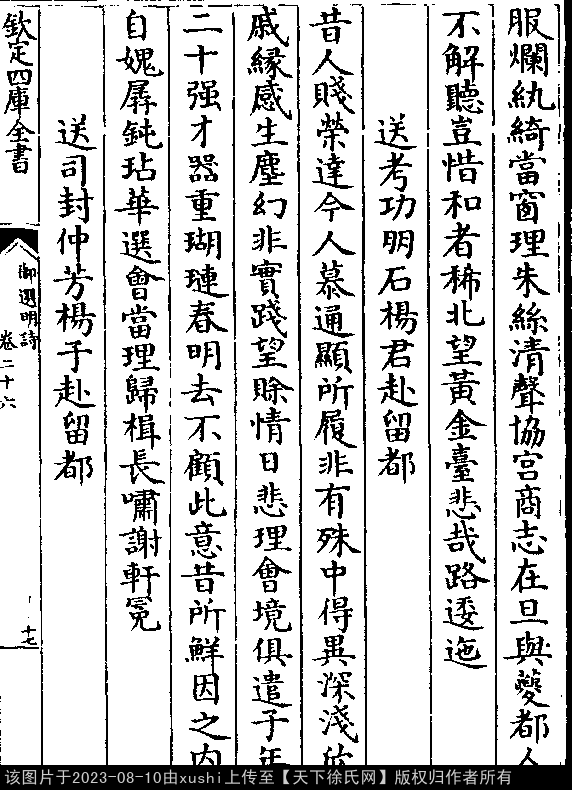 服爛紈綺當窗理朱絲清聲協宫商志在旦與夔都人
不解聽豈惜和者稀北望黄金臺悲哉路逶迤
送考功朙石楊君赴留都
昔人賤榮達今人慕通顯所履非有殊中得異深淺欣
戚緣感生塵幻非實踐望賖情日悲理會境俱遣子年
二十强才器重瑚璉春明去不顧此意昔所鮮因之内
自媿孱鈍玷華選會當理歸楫長嘯謝軒冕
送司封仲芳楊子赴留都
欽定四庫全書
御選明詩
卷二十六
十七
该图片于2023-08-10由xushi上传至【天下徐氏网】版权归作者所有